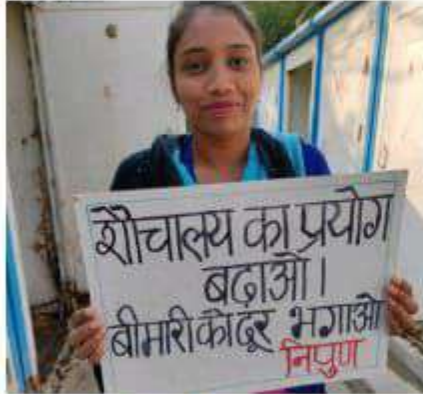 शौचालय का प्रयोग
बढ़ाओ।
बीमारी को दूर भगाओ
निपुण